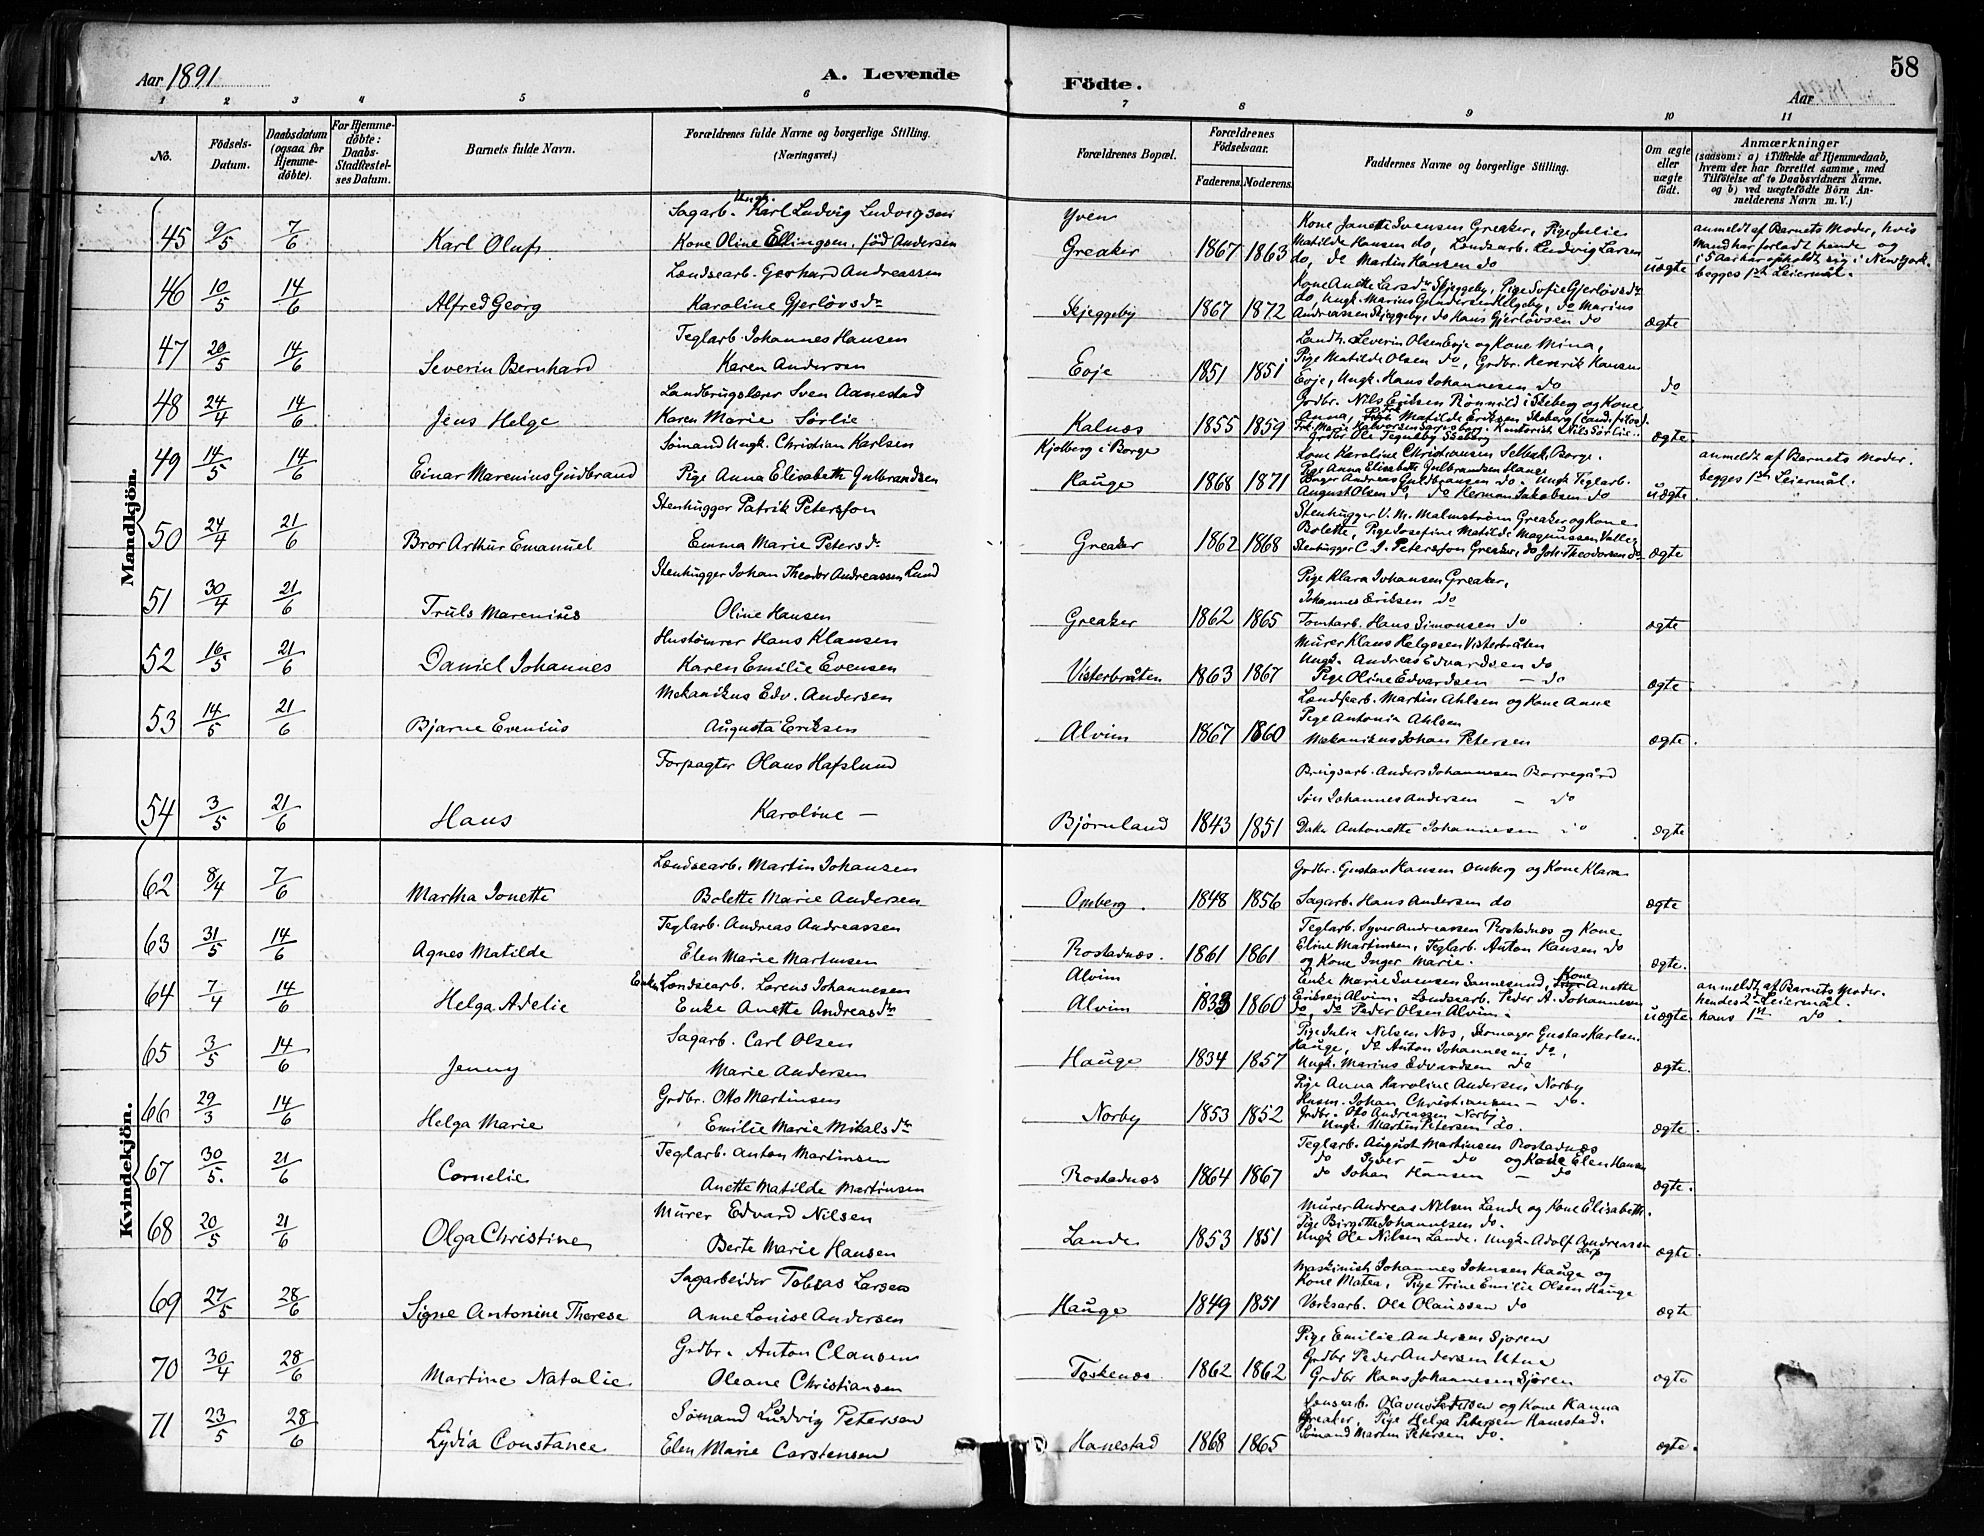 58
Aar 1891
A. Levende
Födte.
Aar
1 2 3 4 5 6 7 8 9 10 11
No.
Födsels-Datum.
Daabsdatum (ogsaa for Hjemmedöbte).
For Hjemmedöbte: Daabs-Stadfæstelses Datum.
Barnets fulde Navn.
Forældrenes fulde Navne og borgerlige Stilling. (Næringsvei.)
Forældrenes Bopæl.
Forældrenes Födselsaar.
Faderens. Moderens.
Faddernes Navne og borgerlige Stilling.
Om ægte eller uægte födt.
Anmærkninger
(saasom: a) i Tilfælde af Hjemmedaab, hvem der har forrettet samme, med Tilföielse af to Daabsvidners Navne. og b) ved uægtefödte Börn Anmelderens Navn m. V.)
Mandkjön.
45 9/5 7/6 Karl Oluf
Ungk.
Sagarb. Karl Ludvig Ludvigsen
Kone Oline Ellingsen, fød Andersen
Yven
Greaker 1867 1863
Kone Janette Svensen Greaker, Pige Julie
Matilde Hansen do, Landsarb. Ludvig Larsen
do, do Martin Hansen do
uægte
anmeldt af Barnets Moder, hvis
Mand har forladt hende og
i 5 Aar har opholdt sig i New York.
begges 1ste Leiermål.
46 10/5 14/6 Alfred Georg
Lændsearb. Gerhard Andreassen
Karoline Gjerløvsdr
Skjeggeby 1867 1872
Kone Anette Larsdr Skjeggeby, Pige Sofie Gjerløvsdr
do, Ungk. Marius Gundersen Helgeby, do Marius
Andreassen Skjeggeby, do Hans Gjerløvsen do
ægte
47 20/5 14/6 Severin Bernhard
Teglarb. Johannes Hansen
Karen Andersen
Evje 1851 1851
Landh. Severin Olsen Evje og Kone Mina,
Pige Matilde Olsen do, Grdbr. Henrik Hansen
Evje, Ungk. Hans Johannesen do
do
48 24/4 14/6 Jens Helge
Landbrugslærer Sven Aanestad
Karen Marie Sørlie
Kalnæs 1855 1859
Grdbr. Nils Eriksen Rönnild i Skeberg og Kone
Anna, Matilde Eriksen Skeberg, Cand. filos.
Frk. Marie Halvorsen Sarpsborg. Kontorist Nils Sørlie
Grdbr. Ole Tegneby Skeberg
ægte.
49 14/5 14/6 Einar Marenius Gudbrand
Sømand Ungk. Christian Karlsen
Pige Anna Elisabeth Gulbrandsen
Kjølberg i Borge
Hauge 1868 1871
Kone Karoline Christiansen Selbak, Borge.
Pige Anna Elisabeth Gulbrandsen Hauge
Bager Andreas Guldbransen do. Ungk Teglarb.
August Olsen do, do Herman Jakobsen do
uægte
anmeldt af Barnets Moder.
begges 1ste Leiermål.
50 24/4 21/6 Bror Arthur Emanuel
Stenhugger Patrik Petersson
Emma Marie Petersdr
Greaker 1862 1868
Stenhugger V. M. Malmström Greaker og Kone
Bolette, Pige Josefine Matilde Magnussen Valle,
Stenhugger C. J. Petersson Greaker, do Joh. Theodorsen do
ægte
51 30/4 21/6 Truls Marenius
Stenhugger Johan Theodor Andreassen Lund
Oline Hansen
Greaker 1862 1865
Pige Klara Johansen Greaker,
Johannes Eriksen do
Tomtarb. Hans Simonsen do
ægte
52 16/5 21/6 Daniel Johannes
Hustømrer Hans Klausen
Karen Emilie Evensen
Visterbråten 1863 1867
Murer Klaus Helgesen Visterbråten
Ungk. Andreas Edvardsen do
Pige Oline Edvardsen – do
ægte.
53 14/5 21/6 Bjarne Evenius
Mekanikus Edv. Andersen
Augusta Eriksen
Alvim 1867 1860
Lændsearb. Martin Ahlsen og Kone Anne
Pige Antonia Ahlsen
Mekanikus Johan Petersen
ægte.
54 3/5 21/6 Hans
Forpagter Olaus Hafslund
Karoline –
Bjørnland 1843 1851
Brugsarb. Anders Johannesen Borregård
Søn Johannes Andersen – do
Datter Antonette Johannesen do
ægte
Kvindekjön.
62 8/4 7/6 Martha Jonette
Lændsearb. Martin Johansen
Bolette Marie Andersen
Omberg. 1848 1856
Grdbr. Gustav Hansen Omberg og Kone Klara
Sagarb. Hans Andersen do
ægte
63 31/5 14/6 Agnes Matilde
Teglarb. Andreas Andreassen
Elen Marie Martinsen
Rostadnæs. 1861 1861
Teglarb. Syver Andreassen Rostadnæs og Kone
Eline Martinsen, Teglarb. Anton Hansen do
og Kone Inger Marie.
ægte.
64 7/4 14/6 Helga Adelie
Enkem. Lændsearb. Lorens Johannesen
Enke Anette Andreasdtr
Alvim
Alvim 1833 1860
Enke Marie Svensen Sannesund, Kone Anette
Eriksen Alvim. Lændsearb. Peder A. Johannesen
do, do Peder Olsen Alvim.
uægte
anmeldt af Barnets Moder.
hendes 2det Leiermål.
hans 1ste do.
65 3/5 14/6 Jenny
Sagarb. Carl Olsen
Marie Andersen
Hauge 1834 1857
Pige Julie Nilsen Næs, Skomager Gustav Karlsen
Hauge, do Anton Johannesen do,
Ungk. Marius Edvardsen do
ægte.
66 29/3 14/6 Helga Marie
Grdbr. Otto Martinsen
Emilie Marie Mikalsdtr
Norby 1853 1852
Pige Anna Karoline Andersen Norby
Husm. Johan Christiansen – do.
Grdbr. Otto Andreassen Norby.
Ungk. Martin Petersen do.
ægte.
67 30/5. 21/6 Cornelie
Teglarb. Anton Martinsen
Anette Matilde Martinsen
Rostadnæs 1864 1867
Teglarb. August Martinsen Rostadnæs
do Syver – do og Kone Elen Hansen
do Johan Hansen – do
ægte.
68 20/5 21/6 Olga Christine
Murer Edvard Nilsen
Berte Marie Hansen
Lande 1853 1851
Murer Andreas Nilsen Lande og Kone Elisabeth.
Pige Birgitte Johannesen do.
Ungk Ole Nilsen Lande. Ungk. Adolf Andreassen
Sarp
ægte.
69 27/5 28/6 Signe Antonine Therese
Sagarbeider Tobias Larsen
Anne Louise Andersen
Hauge 1849 1851
Maskinist Johannes Johnsen Hauge og
Kone Matea, Pige Trine Emilie Olsen Hauge
Værksarb. Ole Olaussen do
ægte
70 30/4 28/6 Martine Natalie
Grdbr. Anton Clausen
Oleane Christiansen
Teskenæs 1862 1862
Pige Emilie Andersen Sjøren
Grdbr Peder Andersen Utne
Grdbr Hans Johannesen Sjøren
ægte
71 23/5 28/6 Lydia Constance
Sømand Ludvig Petersen
Elen Marie Carstensen
Hanestad 1868 1865
Lænsearb. Olavus Pettersen og Kone Hanna
Greaker, Pige Helga Petersen Hanestad.
Sømand Martin Petersen do.
ægte.